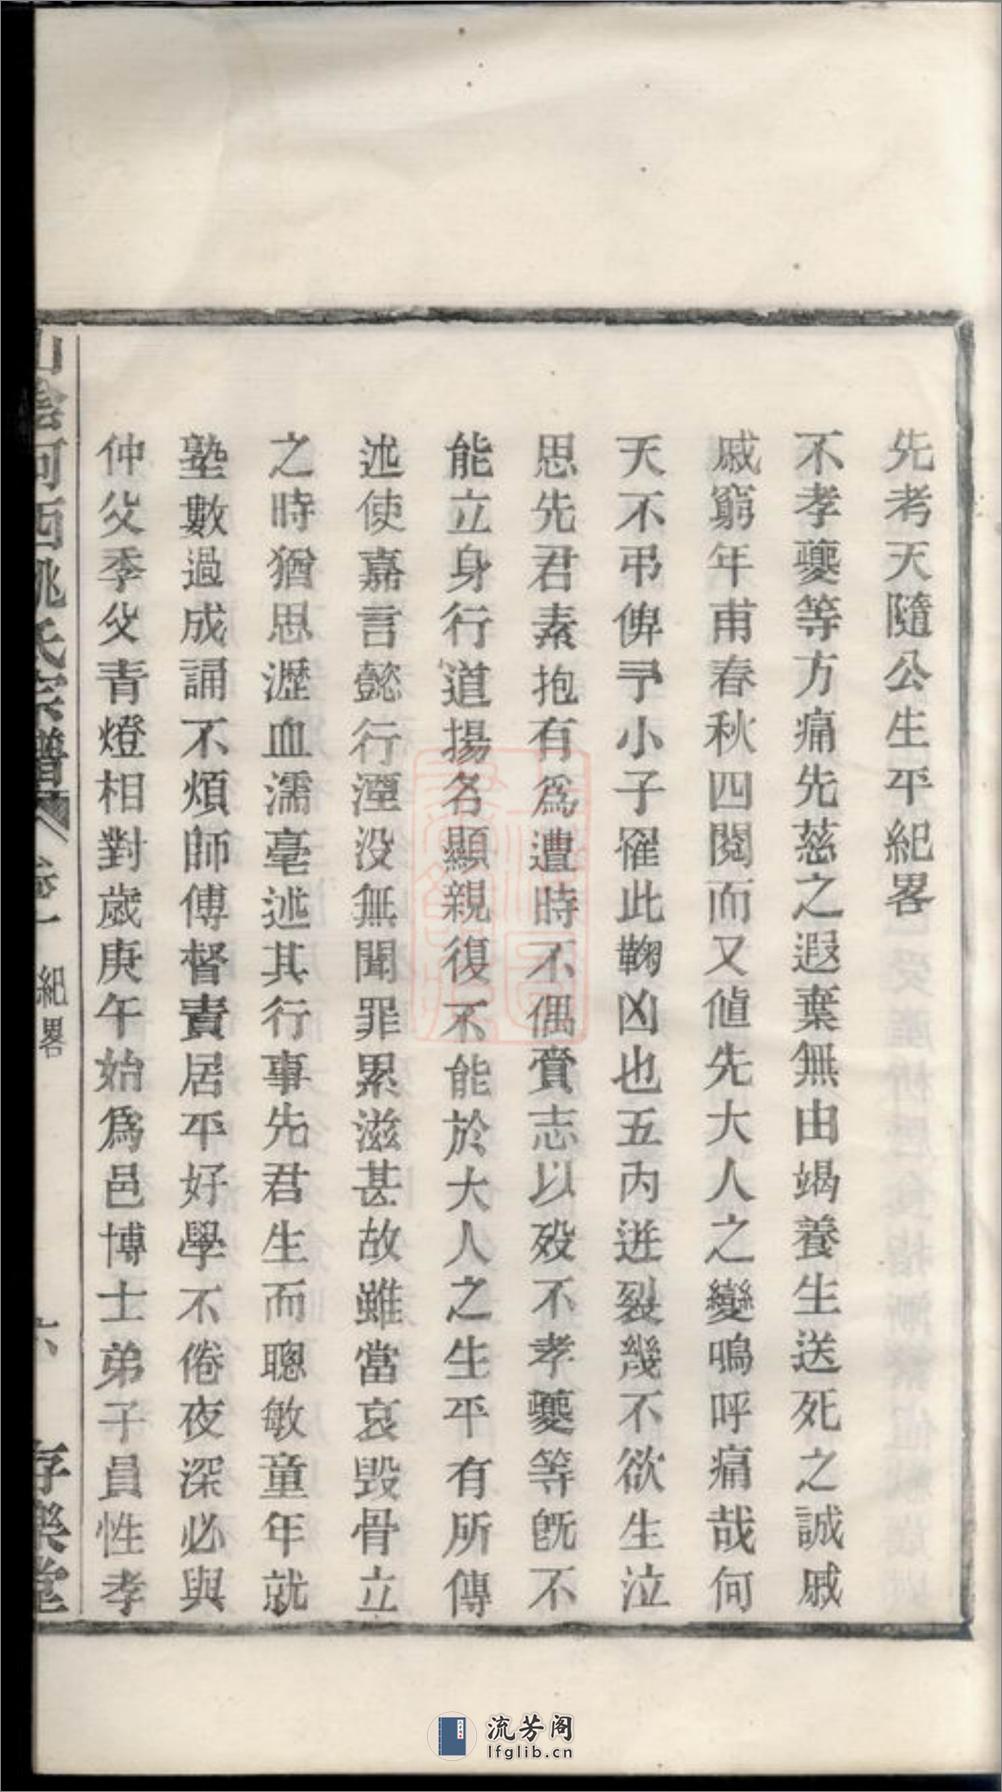 先考天隨公生平紀畧
不孝夔等方痛先慈之遐棄無由竭養生送死之誠戚
戚窮年甫春秋四閱而又値先大人之變嗚呼痛哉何
天不弔俾予小子罹此鞠凶也五內迸裂幾不欲生泣
思先君素抱有爲遭時不偶賫志以歿不孝夔等旣不
能立身行道揚名顯親復不能於大人之生平有所傳
述使嘉言懿行湮没無聞罪累滋甚故雖當哀毀骨立
之時猶思瀝血濡毫述其行事先君生而聰敏童年就
塾數過成誦不煩師傅督責居平好學不倦夜深必與
仲父季父青燈相對歲庚午始爲邑博士弟子員性孝
山陰河西姚氏宗譜 卷一 紀畧 六 存樂堂
流芳阁
lfglib.cn